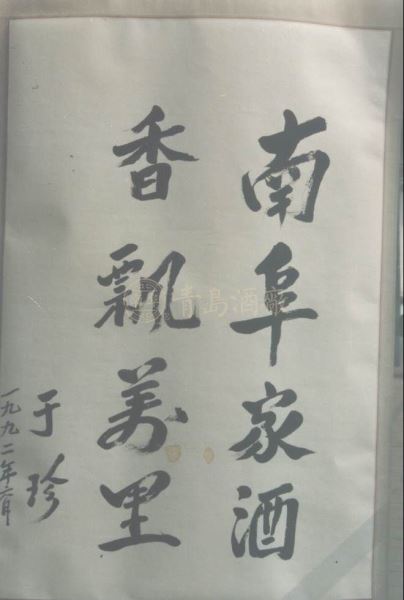 南阜家酒
香飘万里
于珍
一九九二年六月
青岛酒厂